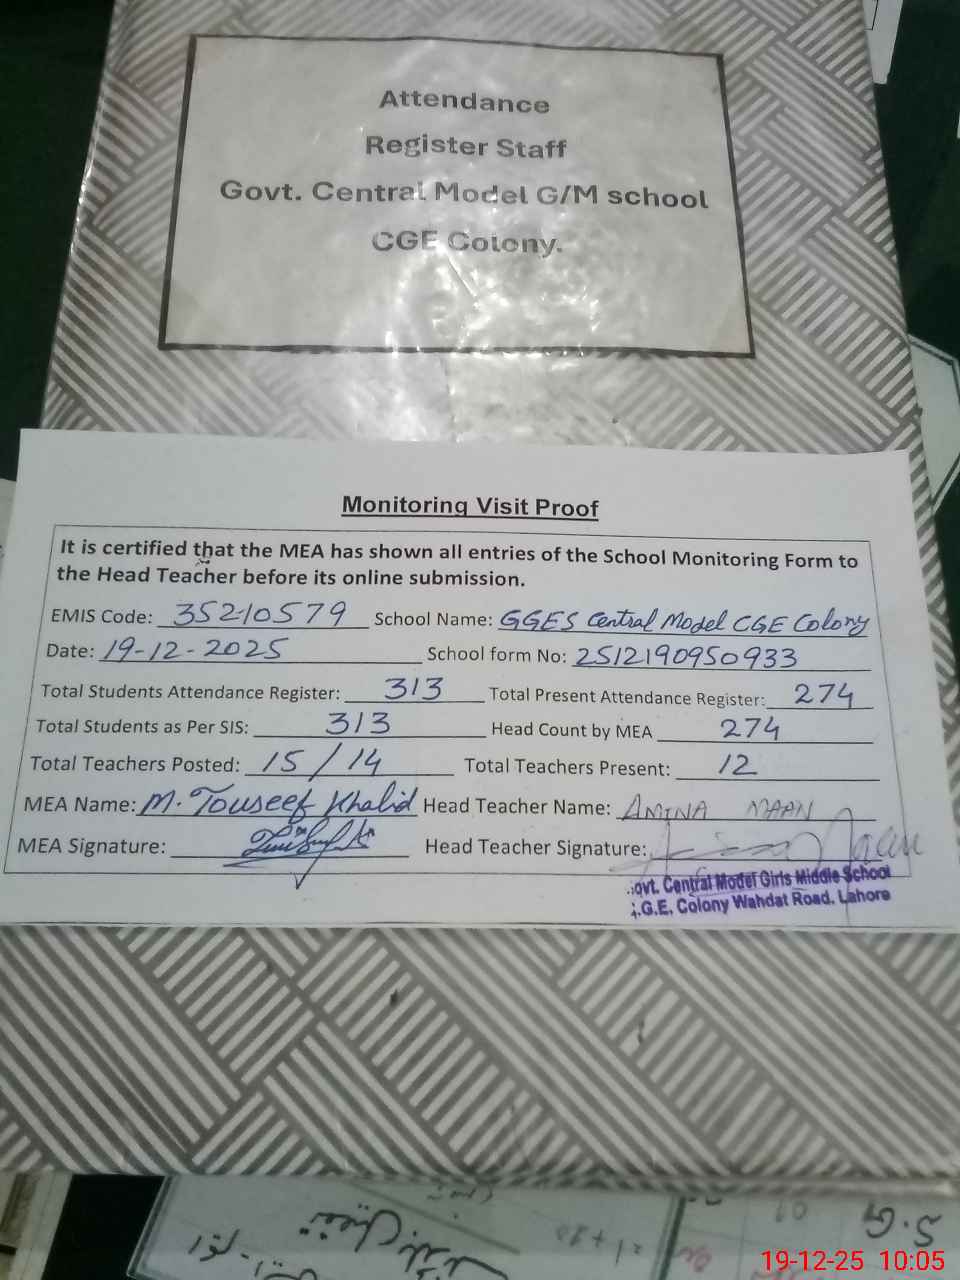 Attendance
Register Staff
Govt. Central Model G/M school
CGE Colony.
Monitoring Visit Proof
It is certified that the MEA has shown all entries of the School Monitoring Form to
the Head Teacher before its online submission.
EMIS Code: 35210579 School Name: GGES Central Model CGE Colony
Date: 19-12-2025 School form No: 2512190950933
Total Students Attendance Register: 313 Total Present Attendance Register: 274
Total Students as Per SIS: 313 Head Count by MEA 274
Total Teachers Posted: 15/14 Total Teachers Present: 12
MEA Name: M. Touseef Khalid Head Teacher Name: AMINA MAAN
MEA Signature: Head Teacher Signature:
ovt. Central Model Girls Middle School
.G.E. Colony Wahdat Road. Lahore
S.G
19-12-25 10:05